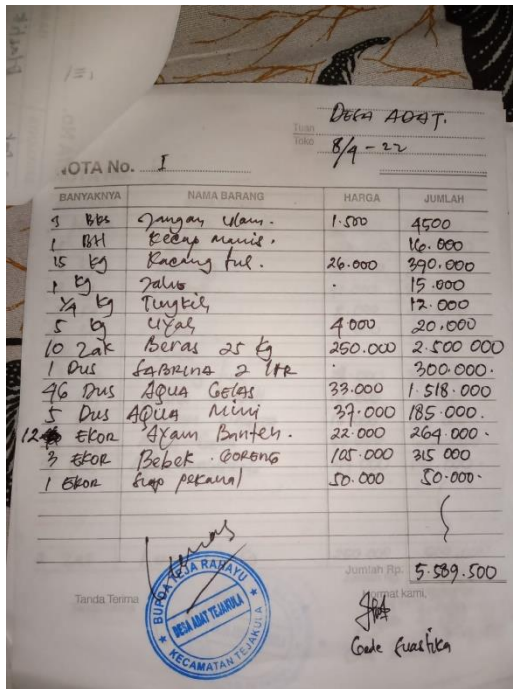 DESA ADAT.
Tuan
Toko
8/9-22
NOTA No. I
BANYAKNYA NAMA BARANG HARGA JUMLAH
3 Bks Ulam. 1.500 4500
1 BH Kecap manis. 16.000
15 kg Kacang 26.000 390.000
1 kg 15.000
1/4 kg 12.000
5 kg Uyah 4.000 20.000
10 Zak Beras 25 kg 250.000 2.500 000
1 Dus SABRINA 2 LTR 300.000.
46 Dus AQUA GELAS 33.000 1.518.000
5 Dus AQUA Mini 37.000 185.000.
12 EKOR Ayam Banten. 22.000 264.000.
3 EKOR Bebek GORENG 105.000 315 000
1 EKOR 50.000 50.000.
Jumlah Rp. 5.589.500
Tanda Terima Hormat kami,
BUPDA TEJA RAHAYU
DESA ADAT TEJAKULA
KECAMATAN TEJAKULA
Gede Suastika